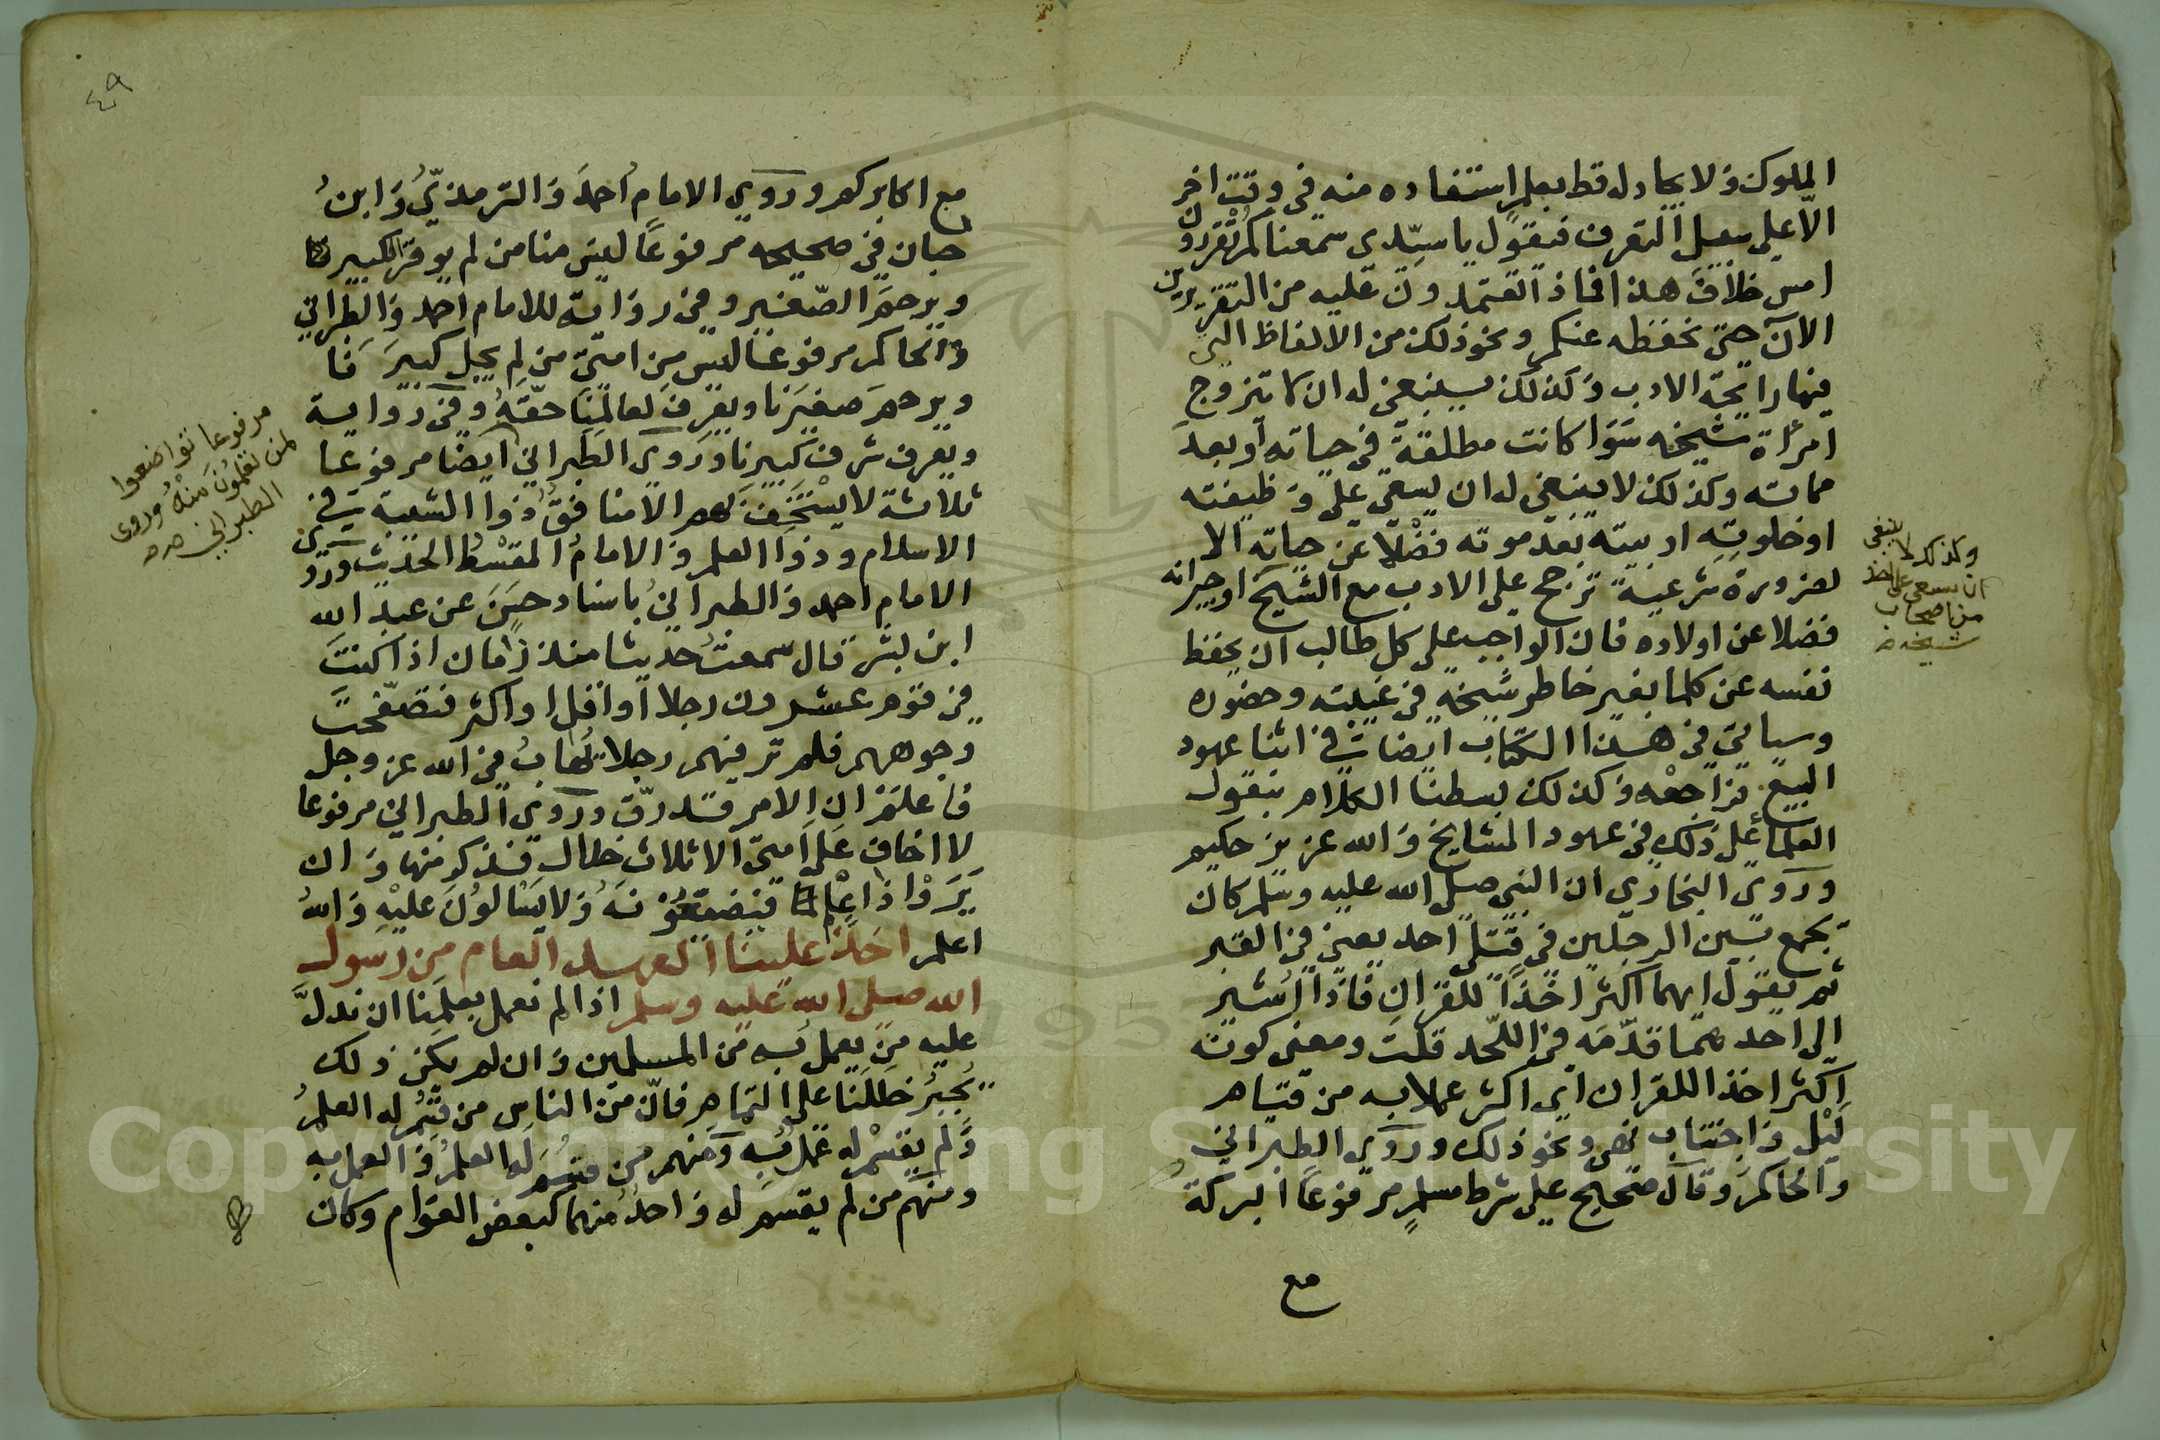 الملوك ولا يجادله قط بعلم استفاده منه في وقت اخر
الا على سبيل التعرف فيقول يا سيدي سمعناكم تقررون
امس خلاف هذا فماذا تعتمدون عليه من التقريرين
الآن حتى نحفظه عنكم ونحو ذلك من الالفاظ التي
فيها رائحة الادب وكذلك ينبغي له ان لا يتزوج
امرأة شيخه سوا كانت مطلقة في حياته او بعد
مماته وكذلك لا ينبغي له ان يسعى على وظيفته
او خلوته او بيته بعد موته فضلا عن حياته الا
لضرورة شرعية ترجح على الادب مع الشيخ او جيرانه
فضلا عن اولاده فان الواجب على كل طالب ان يحفظ
نفسه عن كلما يغير خاطر شيخه في غيبته وحضوره
وسياتي في هذا الكتاب ايضا في اثنا عهود
البيع فراجعه وكذلك بسطنا الكلام بنقول
العلما على ذلك في عهود المشايخ والله عزيز حكيم
وروى البخاري ان النبي صلى الله عليه وسلم كان
يجمع بين الرجلين في قتلى احد يعني في القبر
ثم يقول ايهما اكثر اخذا للقران فاذا اشير
الى احدهما قدمه في اللحد قلت ومعنى كونه
اكثر اخذا للقران اي اكثر عملا به من قيام
ليل واجتناب نهي ونحو ذلك وروى الطبراني
والحاكم وقال صحيح على شرط مسلم مرفوعا البركة
مع
وكذلك لا ينبغي
ان يسعى على احد
من اصحاب
شيخه
٤٩
مع اكابركم وروى الامام احمد والترمذي وابن
حبان في صحيحه مرفوعا ليس منا من لم يوقر الكبير
ويرحم الصغير وفي رواية للامام احمد والطبراني
والحاكم مرفوعا ليس من امتي من لم يجل كبيرنا
ويرحم صغيرنا ويعرف لعالمنا حقه وفي رواية
ويعرف شرف كبيرنا وروى الطبراني ايضا مرفوعا
ثلاثة لا يستخف بهم الا منافق ذوا الشيبة في
الاسلام وذوا العلم والامام المقسط الحديث وروى
الامام احمد والطبراني باسناد حسن عن عبد الله
ابن بشر قال سمعت حديثا منذ زمان اذا كنت
في قوم عشرون رجلا او اقل او اكثر فتصفحت
وجوههم فلم تر فيهم رجلا يهاب في الله عز وجل
فاعلم ان الامر قد رق وروى الطبراني مرفوعا
لا اخاف على امتي الا ثلاث خصال فذكر منها وان
يروا ذا علم فيضيعونه ولا يسالون عليه والله
اعلم اخذ علينا العهد العام من رسول
الله صلى الله عليه وسلم اذا لم نعمل بعلمنا ان ندل
عليه من يعمل به من المسلمين وان لم يكن ذلك
يجبر خللنا على التمام فان من الناس من قسم له العلم
ولم يقسم له عمل به ومنهم من قسم له العلم والعمل به
ومنهم من لم يقسم له واحد منهما كبعض العوام وكان
مرفوعا تواضعوا
لمن تعلمون منه وروى
الطبراني